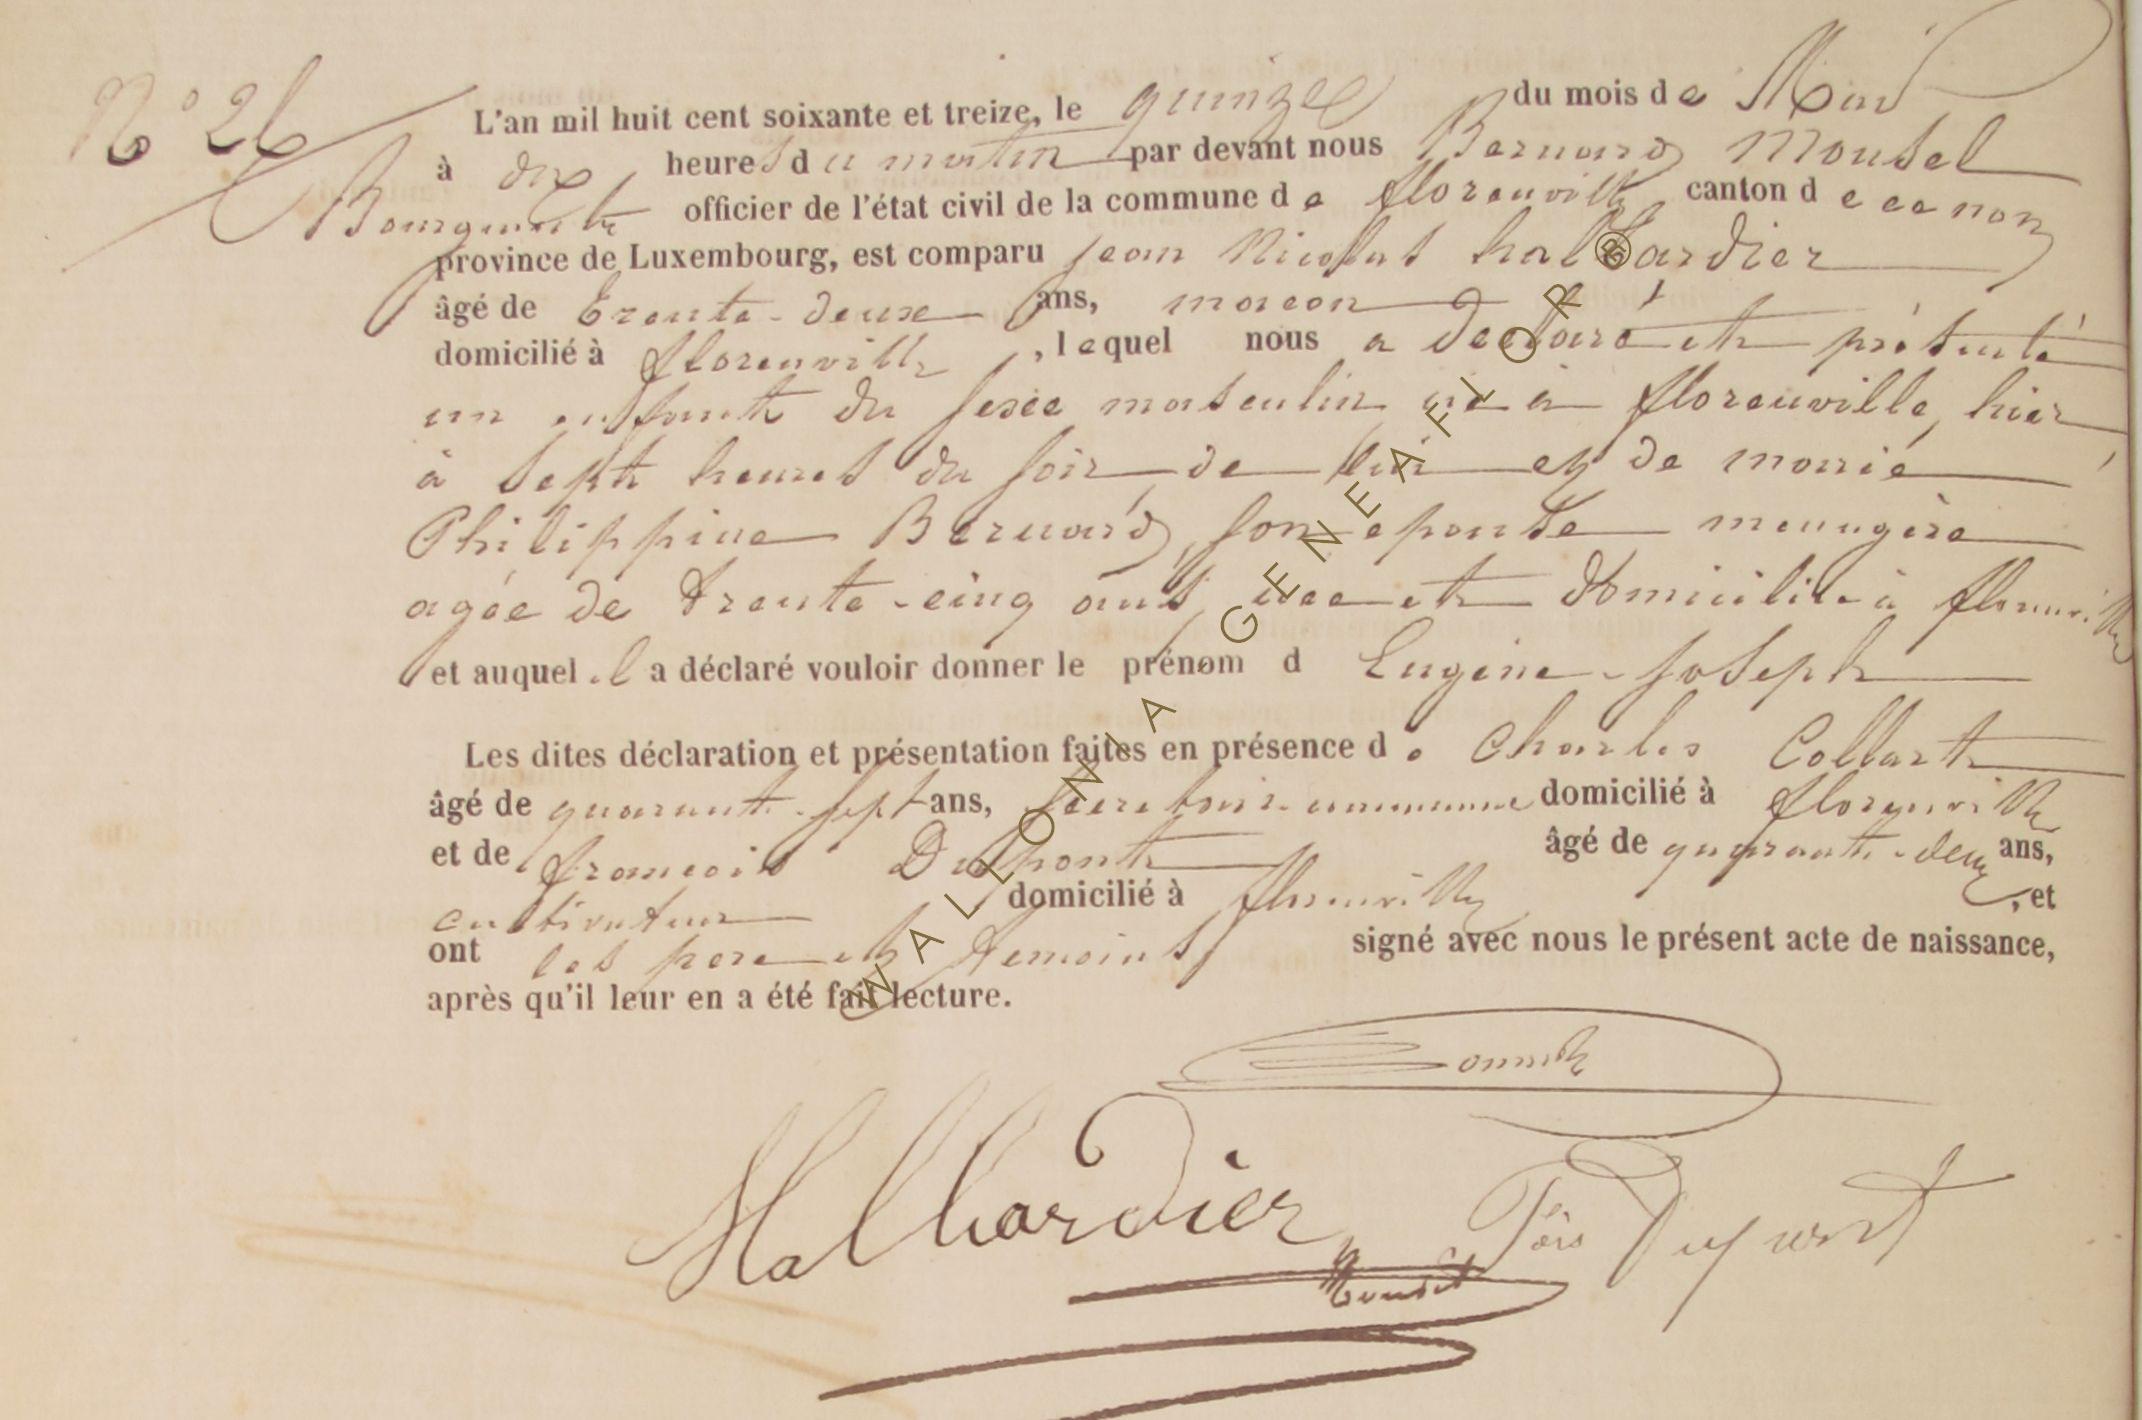 N° 26
L'an mil huit cent soixante et treize, le quinze du mois de Mai
à dix heures du matin par devant nous Bernard Mousel
Bourgmestre officier de l'état civil de la commune de florenville canton de
province de Luxembourg, est comparu jean Nicolas halbardier
âgé de trente-deux ans, macon
domicilié à florenville, lequel nous a déclaré et présenté
un enfant du sexe masculin né à florenville, hier
à sept heures du soir de lui et de marie
Philippine Bernard, son épouse menagère
agée de trente-cinq ans, née et domiciliée à florenville
et auquel il a déclaré vouloir donner le prénom d Eugène-joseph
Les dites déclaration et présentation faites en présence de Charles Collart
âgé de quarante-sept ans, secretaire communal domicilié à florenville
et de françois Dupont âgé de quarante-deux ans,
cultivateur domicilié à florenville, et
ont les père et temoins signé avec nous le présent acte de naissance,
après qu'il leur en a été fait lecture.
Halbardier
Fçois Dupont
Mousel
WALLONIA GENEAFLOR